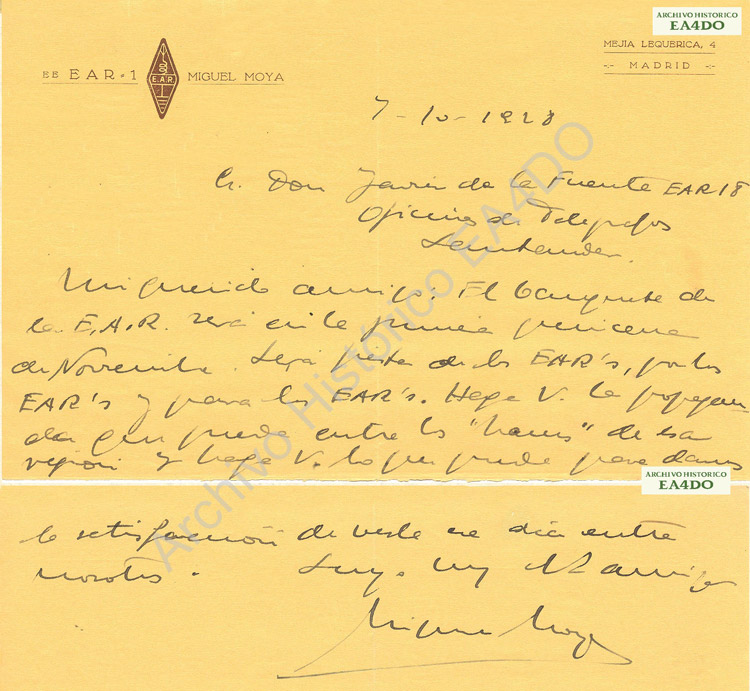 ARCHIVO HISTORICO
EA4DO
EE EAR-1 E.A.R. MIGUEL MOYA
MEJIA LEQUERICA, 4
-:- MADRID -:-
7-10-1928
Sr. Don Javier de la Fuente EAR 18
Oficina de Telegrafos
Santander.
Mi querido amigo: El banquete de
la E.A.R. será en la primera quincena
de Noviembre. Será fiesta de los EAR's, por los
EAR's y para los EAR's. Haga V. la propagan
da que pueda entre los "hams" de esa
región y haga V. lo que pueda para darnos
ARCHIVO HISTORICO
EA4DO
la satisfacción de verle ese día entre
nosotros. Suyo. amigo
Miguel Moya
Archivo Histórico EA4DO